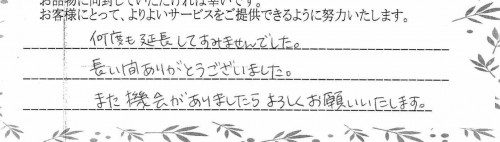 お品物に同封していただければ幸いです。
お客様にとって、よりよいサービスをご提供できるように努力いたします。
何度も延長してすみませんでした。
長い間ありがとうございました。
また機会がありましたらよろしくお願いいたします。